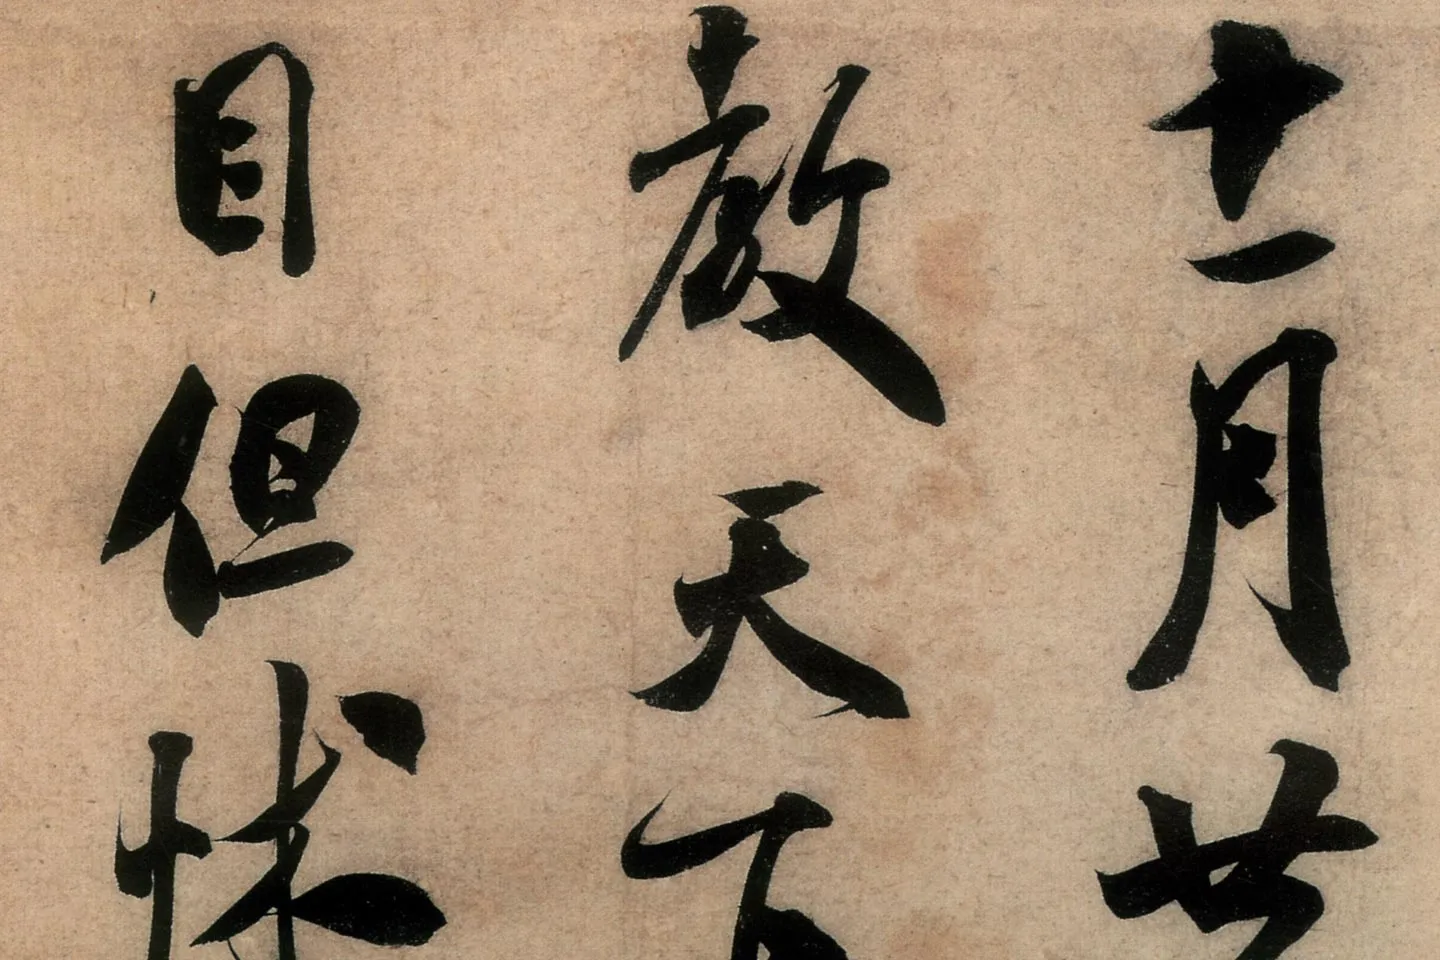 十一月廿
教天下
目但怵